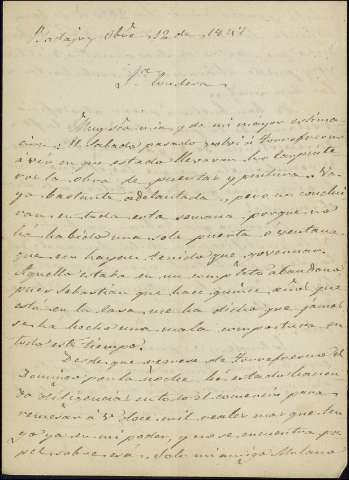 Badajoz Obre 12 de 18
Sra Condesa
Muy Sra mia y de mi mayor estima
cion: El Sabado pasado volvi á Torrefresno
á ver en que estado llevavan los carpinte
ros la obra de puertas y pintura. Va
ya bastante adelantada, pero no conclui
ran en toda esta semana porque no
há habido una sola puerta ó ventana
que no hayan tenido que governar.
Aquello estaba en un completo abandono
pues Sebastian que hace quince años que
está en la casa me há dicho que jamás
se ha hecho una mala compostura en
todo este tiempo.
Desde que regresé de Torrefresno el
Domingo por la noche hé estado hacien
do diligencias en todo el comercio para
remesar á V. doce mil reales mas que ten
go ya en mi poder, y no se encuentra pa
pel sobre esa. Solo mi amigo